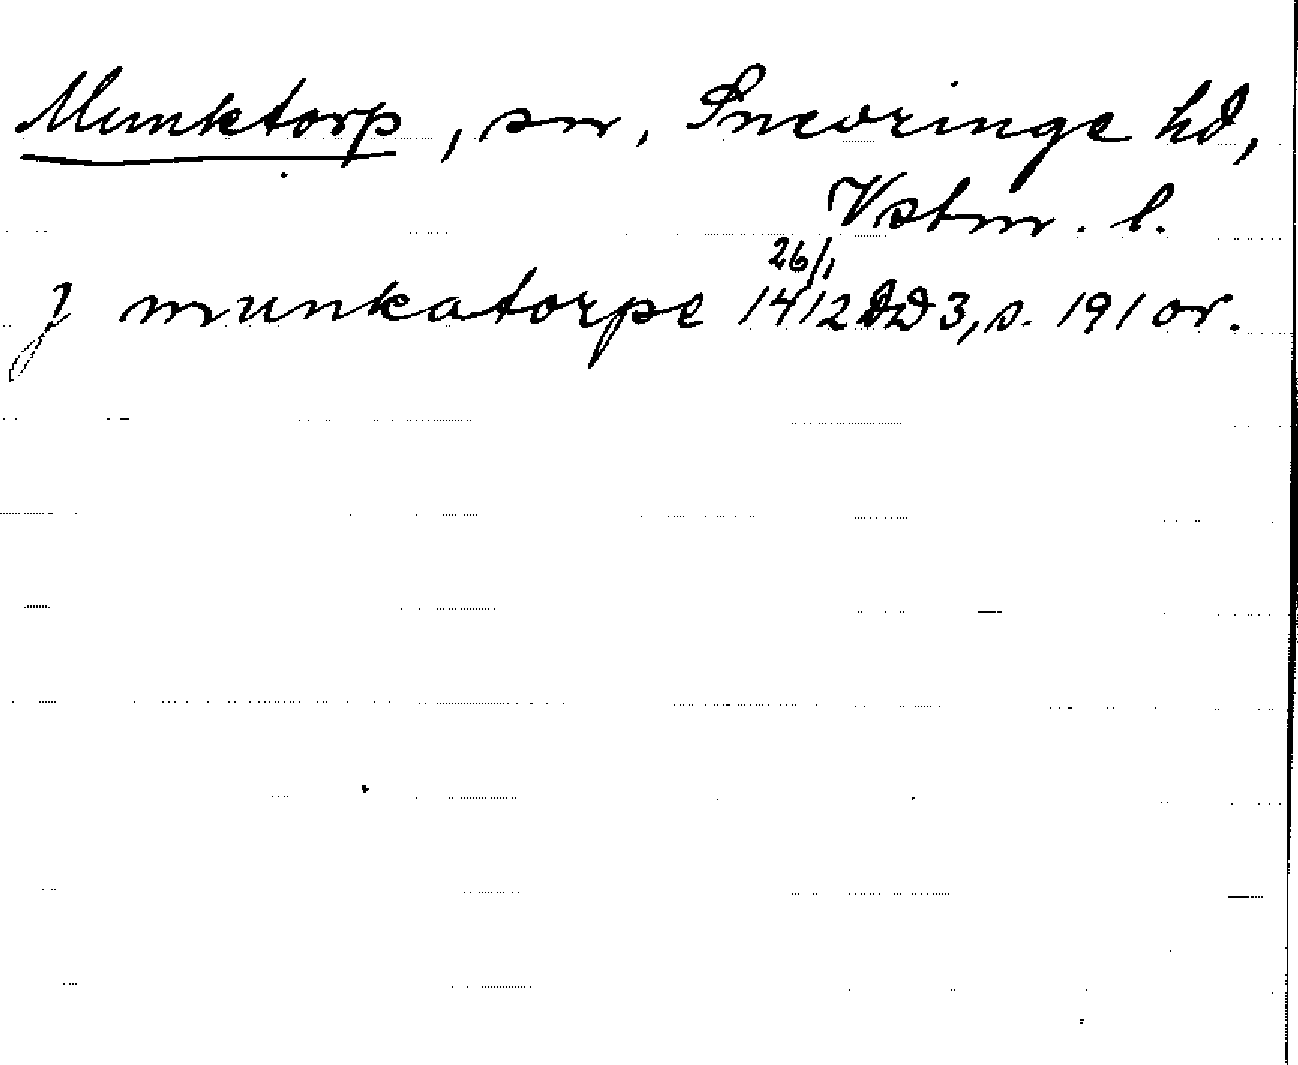 Munktorp, sn, Snevringe hd,
Vstm. l.
J munkatorpe 26/1 1412 SD 3, s. 191 or.